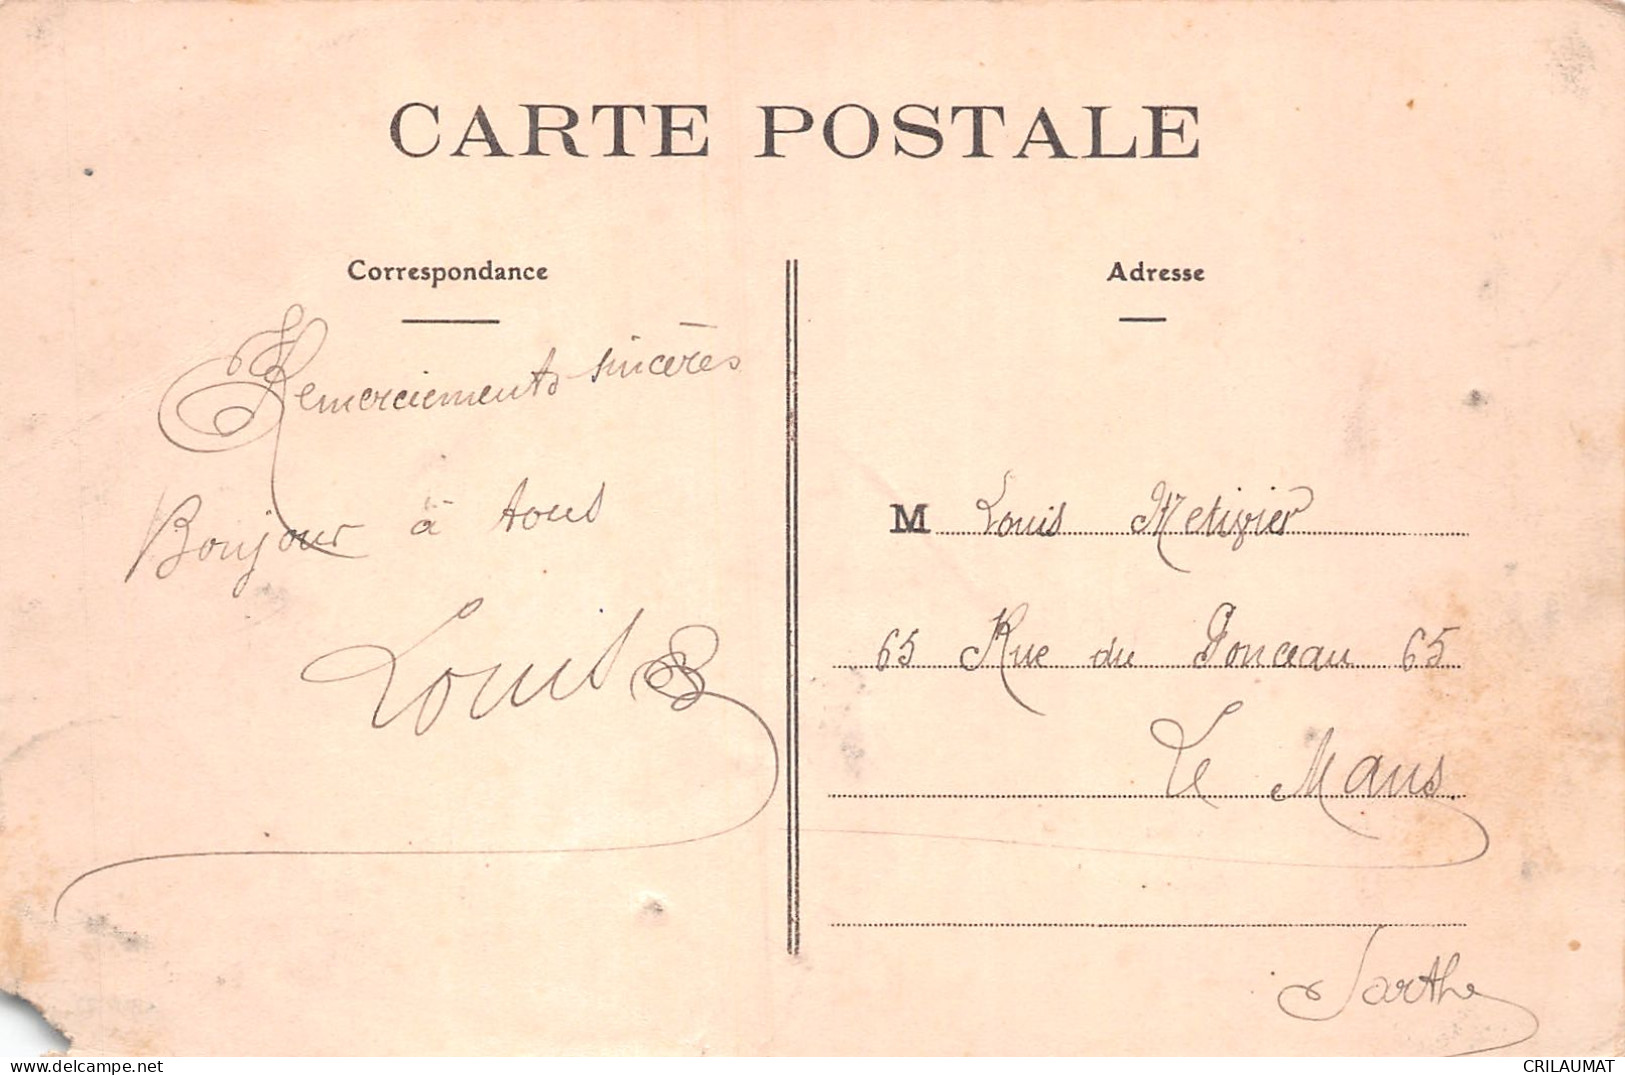 CARTE POSTALE
Correspondance
Remerciements sincères
Bonjour à tous
Louis B
Adresse
M Louis Metivier
65 Rue du Ponceau 65
Le Mans
Sarthe
www.delcampe.net
CRILAUMAT